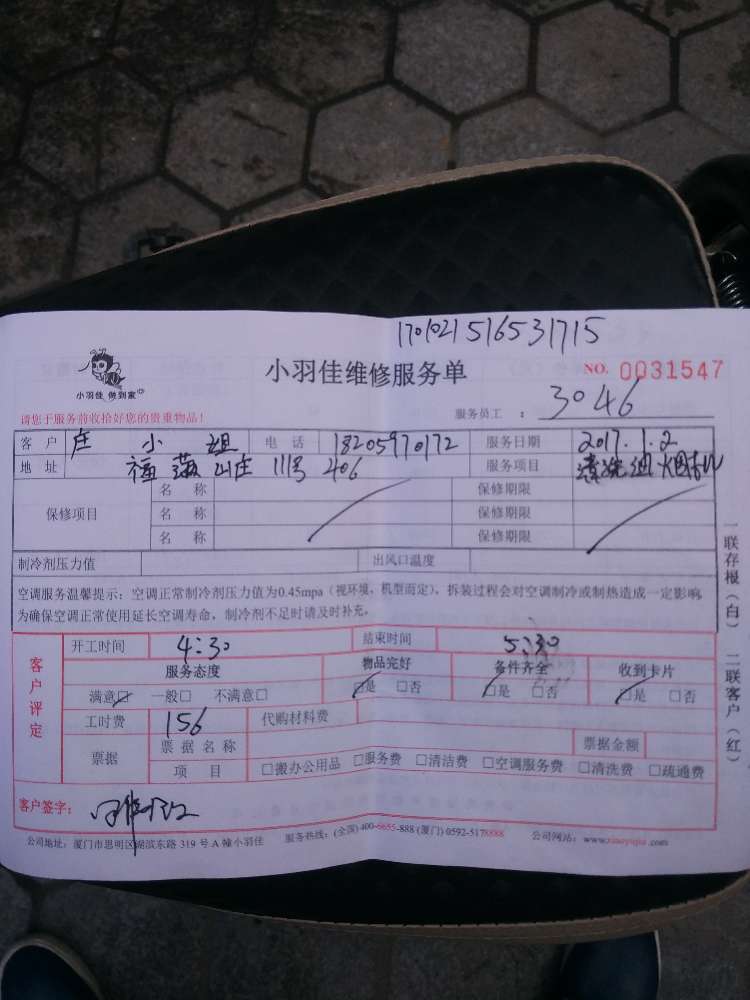 1701021516531715
小羽佳 做到家
小羽佳维修服务单
NO. 0031547
请您于服务前收拾好您的贵重物品!
服务员工 : 3046
客户 庄小姐 电话 18205970172 服务日期 2017.1.2
地址 山庄 111号 406 服务项目 清洗油烟机
保修项目 名称 保修期限
名称 保修期限
名称 保修期限
制冷剂压力值 出风口温度
空调服务温馨提示:空调正常制冷剂压力值为0.45mpa(视环境,机型而定),拆装过程会对空调制冷或制热造成一定影响,
为确保空调正常使用延长空调寿命,制冷剂不足时请及时补充。
客户评定
开工时间 4:30 结束时间 5:30
服务态度 物品完好 备件齐全 收到卡片
满意□ 一般□ 不满意□ □是 □否 □是 □否 □是 □否
工时费 156 代购材料费
票据 票据名称 票据金额
项目 □搬办公用品 □服务费 □清洁费 □空调服务费 □清洗费 □疏通费
客户签字:
公司地址:厦门市思明区湖滨东路 319 号 A 幢小羽佳 服务热线:(全国)400-6655-888 (厦门) 0592-5178888 公司网站:www.xiaoyujia.com
一联存根(白) 二联客户(红)